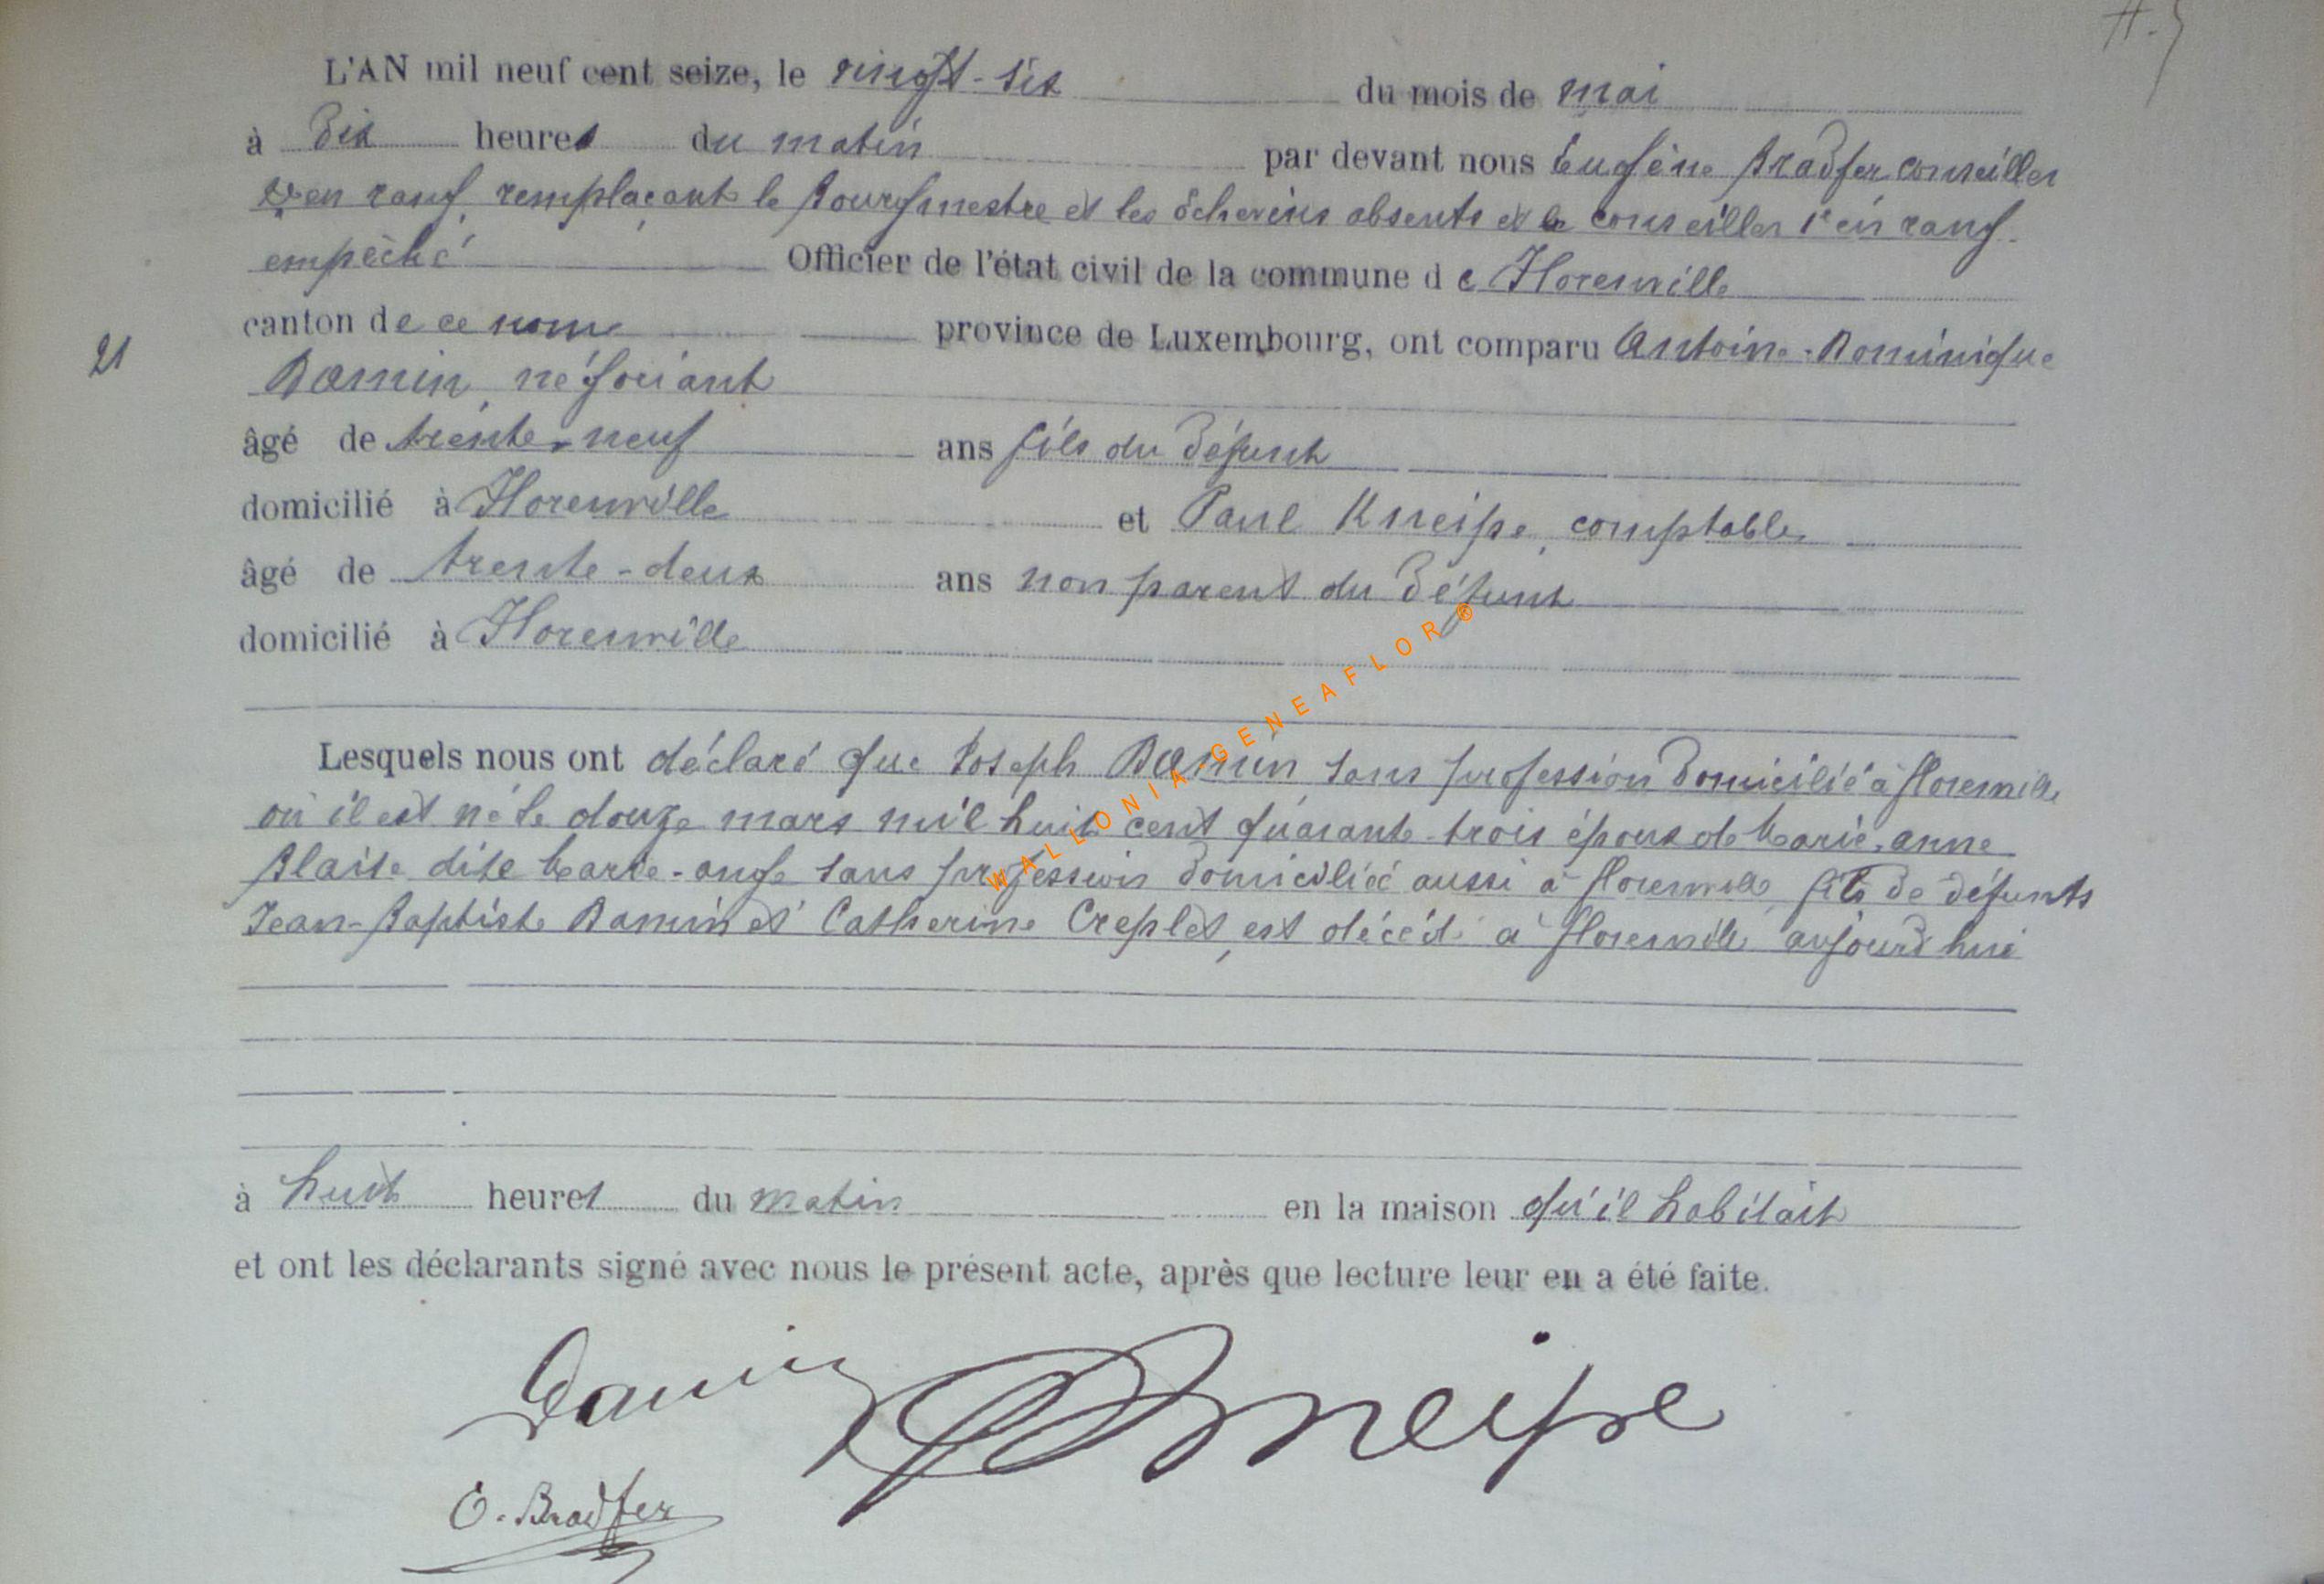 L'AN mil neuf cent seize, le vingt-six du mois de mai
à dix heures du matin par devant nous Eugène Bradfer conseiller
en rang, remplaçant le Bourgmestre et les échevins absents et le conseiller 1er en rang
empêché Officier de l'état civil de la commune de Florenville
canton de ce nom province de Luxembourg, ont comparu Antoine-Dominique
Damin, négociant
âgé de trente-neuf ans fils du défunt
domicilié à Florenville et Paul Kneipe, comptable
âgé de trente-deux ans non parent du défunt
domicilié à Florenville
21
Lesquels nous ont déclaré que Joseph Damin sans profession domicilié à Florenville
où il est né le douze mars mil huit cent quarante-trois époux de Marie-anne
Blaise dite Marie-ange sans profession domiciliée aussi à Florenville, fils de défunts
Jean-Baptiste Damin et Catherine Creplet, est décédé à Florenville aujourd'hui
à huit heures du matin en la maison qu'il habitait
et ont les déclarants signé avec nous le présent acte, après que lecture leur en a été faite.
Damin Kneipe
E. Bradfer
WALLONIA-GENEAFLOR®